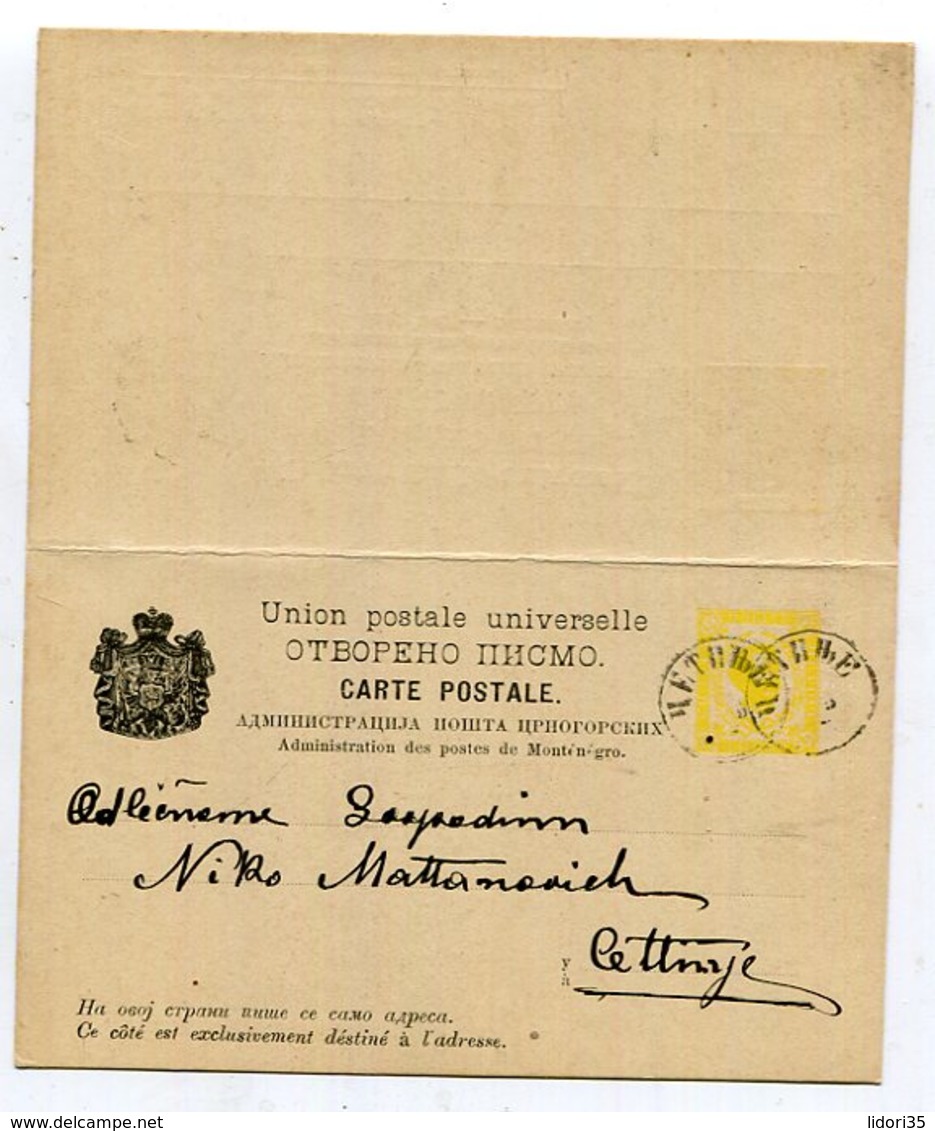 Union postale universelle
ОТВОРЕНО ПИСМО.
CARTE POSTALE.
АДМИНИСТРАЦИЈА ПОШТА ЦРНОГОРСКИХ
Administration des postes de Monténégro.
ЦЕТИЊЕ
ЦЕТИЊЕ
Niko Mattanovich
у
à Cettinje
На овој страни пише се само адреса.
Ce côté est exclusivement déstiné à l'adresse.
lidori35